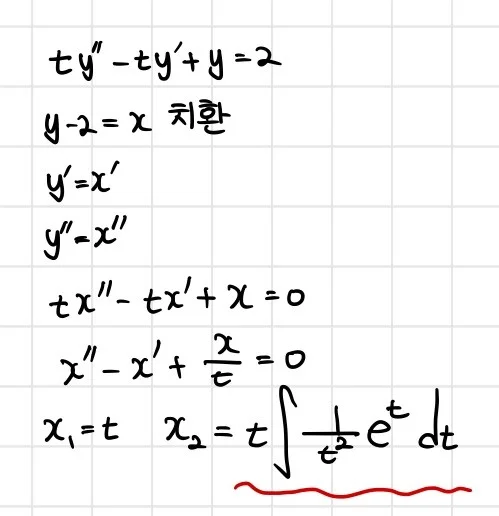 ty″-ty′+y=2
y-2=x 치환
y′=x′
y″=x″
tx″-tx′+x=0
x″-x′+x/t=0
x₁=t x₂=t∫1/t² eᵗ dt